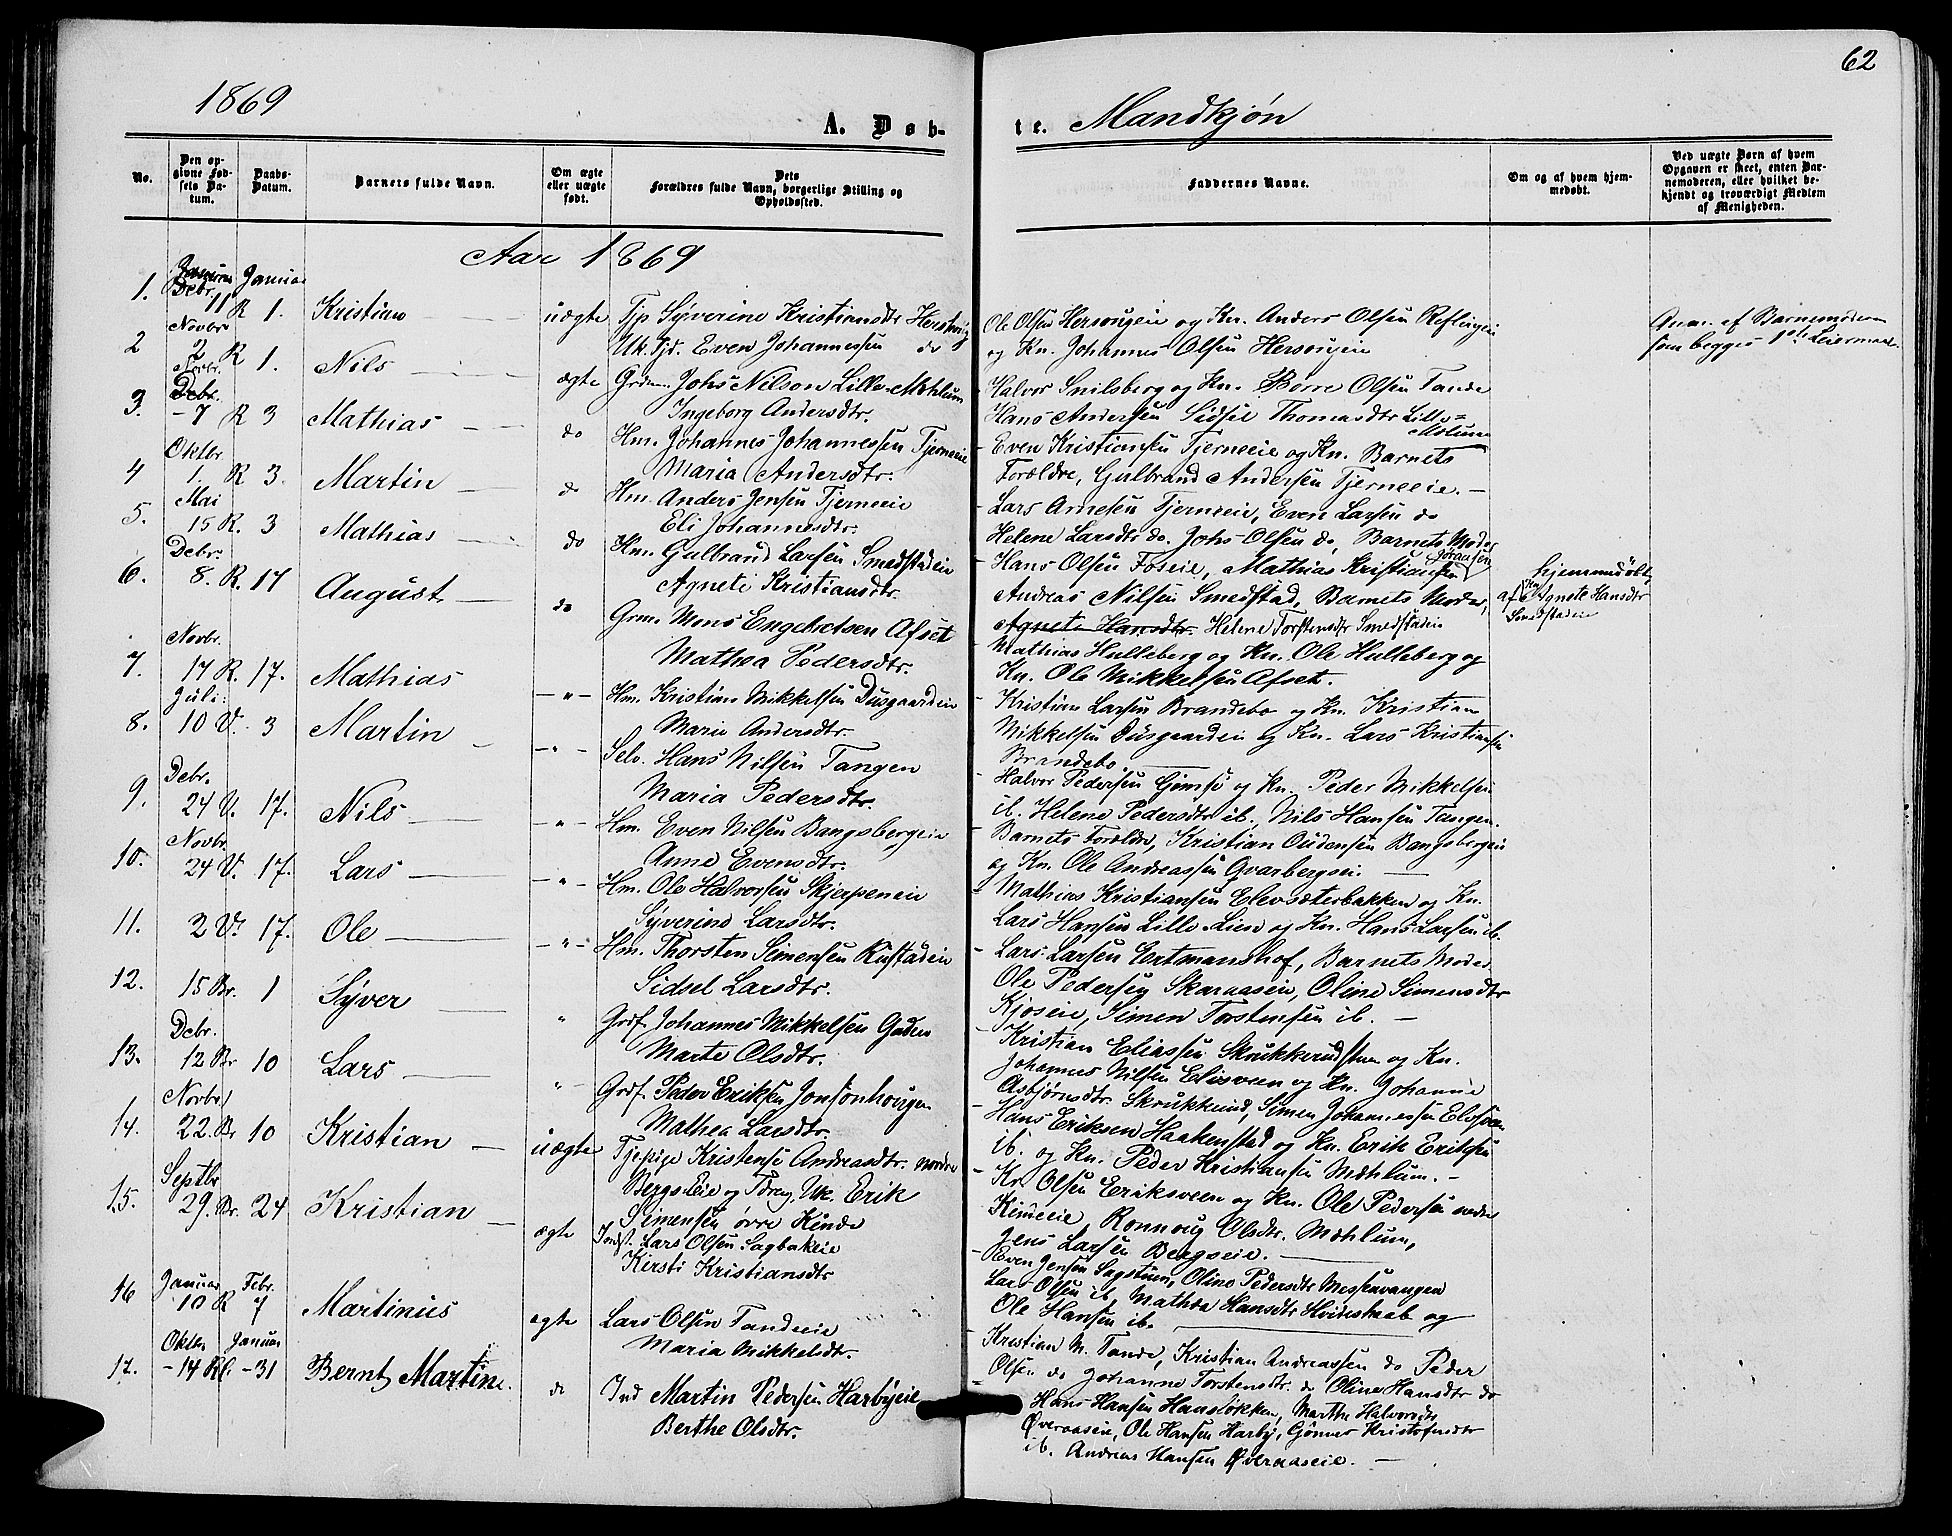 62
1869
A. Døb-
te. Mandkjøn
No.
Den op-
givne Fød-
sels Da-
tum.
Daabs-
Datum.
Barnets fulde Navn.
Om ægte
eller uægte
født.
Dets
Forældres fulde Navn, borgerlige Stilling og
Opholdssted.
Faddernes Navne.
Om og af hvem hjem-
medøbt.
Ved uægte Børn af hvem
Opgaven er skeet, enten Bar-
nemoderen, eller hvilket be-
kjendt og troværdigt Medlem
af Menigheden.
Aar 1869
1. Debr. 11 R Januar 1. Kristian uægte Tjp Syverine Kristiansdtr
Uk. Tjd. Even Johannessen do
Ole Olsen og Kn. Anders Olsen
og Kn. Johannes Olsen
af Barnemoderen
som begges 1ste Leiermaal.
2 Novbr 2 R 1. Nils ægte Grdm. Johs Nilson Lille-Mæhlum
Ingeborg Andersdtr.
- Halvor Snilsberg og Kn. Børre Olsen Tande
Hans Andersen Sidsel Thomasdtr Lille-
Mælum
3. Novbr. Debr. - 7 R 3 Mathias do Hm. Johannes Johannessen Tjerneeie
Maria Andersdtr.
- Even Kristiansen Tjerneeie og Kn. Barnets
Forældre, Gulbrand Andersen Tjerneeie. -
4 Oktbr 1. R 3. Martin do Hm. Anders Jensen Tjerneeie
Eli Johannesdtr.
- Lars Arnesen Tjerneeie, Even Larsen do
Helene Larsdtr do. Johs Olsen do, Barnets Moder
5. Mai 15 R. 3 Mathias do Hm. Gulbrand Larsen Smedstadeie
Agneti Kristiansdtr.
- Hans Olsen Foseie, Mathias Kristiansen
Andreas Nilsen Smedstad, Barnets Moder,
Agnete Hansdtr. Helene Torstensdtr Smedstadeie
hjemmedøbt
af Agnete Hansdtr
Smedstadeie
6. Debr. 8. R. 17 August do Grm. Mons Engebretsen Afset
Mathea Pedersdtr.
- Mathias Hulleberg og Kn. Ole Hulleberg og
Kn. Ole Mikkelsen Afset.
7. Novbr. 17 R. 17. Mathias -"- Hm. Kristian Mikkelsen Dusgaardeie
Marie Andersdtr.
- Kristian Larsen Brandebo og Kn. Kristian
Mikkelsen Dusgaardeie og Kn. Lars Kristiansen
Brandebo
8. Juli. 10 V. 3 Martin -"- Selv. Hans Nilsen Tangen
Maria Pedersdtr.
- Halvor Pedersen Gjømse og Kn. Peder Mikkelsen
ib. Helene Pedersdtr ib., Nils Hansen Tangen.
9. Debr. 24 V. 17. Nils -"- Hm. Even Nilsen Bangsbergeie
Anne Evensdtr.
- Barnets Forældre, Kristian Oudensen Bangsbergeie
og Kn. Ole Andreassen Qvarbergseie.
10. Novbr. 24 V. 17. Lars -"- Hm. Ole Halvorsen Skjerpeneie
Syverine Larsdtr.
- Mathias Kristiansen Elevsæterbakken og Kn.
Lars Hansen Lille-Lien og Kn. Hans Larsen ib.
11. 2 V. 17. Ole -"- Hm. Thorsten Simensen
Sidsel Larsdtr.
- Lars Larsen Eertmanshof, Barnets Moder
Ole Pedersen Skaraaseie, Oline Simensdtr
Kjoseie, Simen Torstensen ib. -
12. 15 Br. 1 Syver " Grdf. Johannes Mikkelsen Gaden
Marte Olsdtr.
- Kristian Eliassen Skrukkerudstuen og Kn.
Johannes Nilsen og Kn. Johanne
Asbjørnsdtr Skrukkerud, Simen Johannessen
13. Debr. 12 Br 10 Lars " Grdf Peder Eriksen Jonsonhougen
Mathea Larsdtr.
- Hans Eriksen Haakenstad og Kn. Erik Eriksen
ib. og Kn. Peder Kristiansen Mæhlum. -
14. Novbr 22. Br 10 Kristian uægte Tjepige Kristense Andreasdtr. nordre
Bergseie og Uk. Erik
Simensen øvre Kinde
- Kr. Olsen Eriksveen og Kn. Ole Pedersen nedre
Kindeie Ronnoug Olsdtr. Mæhlum,
Jens Larsen Bergseie.
15. Septbr 29. Br. 24 Kristian ægte Indst. Lars Olsen Sagbakeie
Kirsti Kristiansdtr
- Even Jensen Sagstuen, Oline Pedersdtr Messenvangen
Lars Olsen ib. Mathea Hansdtr Hvideskaab og
Ole Hansen ib.
16 Januar 10 R Febr. 7 Martinus egte Lars Olsen Tandeeie
Maria Mikkelsdtr.
- Kristian M. Tande, Kristian Andreassen do Peder
Olsen do Johanne Torstensdtr. do Oline Hansdtr do
17. Oktbr -14 Januar -31 Bernt Martin. do Ind Martin Pedersen Harbyeie
Berthe Olsdtr.
Hans Hansen Hansløkken, Marthe Halvorsdtr
Øveraaseie, Ole Hansen Harby, Gønner Kristofersdtr
ib. Andreas Hansen Øveraaseie. -